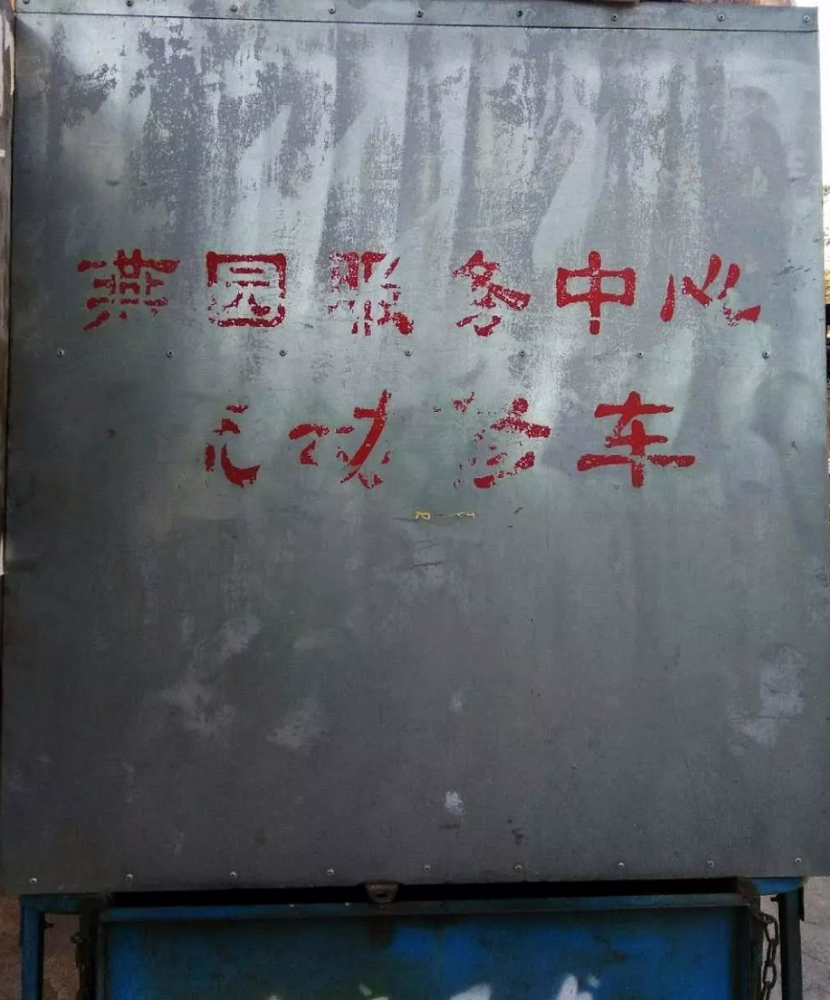 燕园服务中心
流动餐车